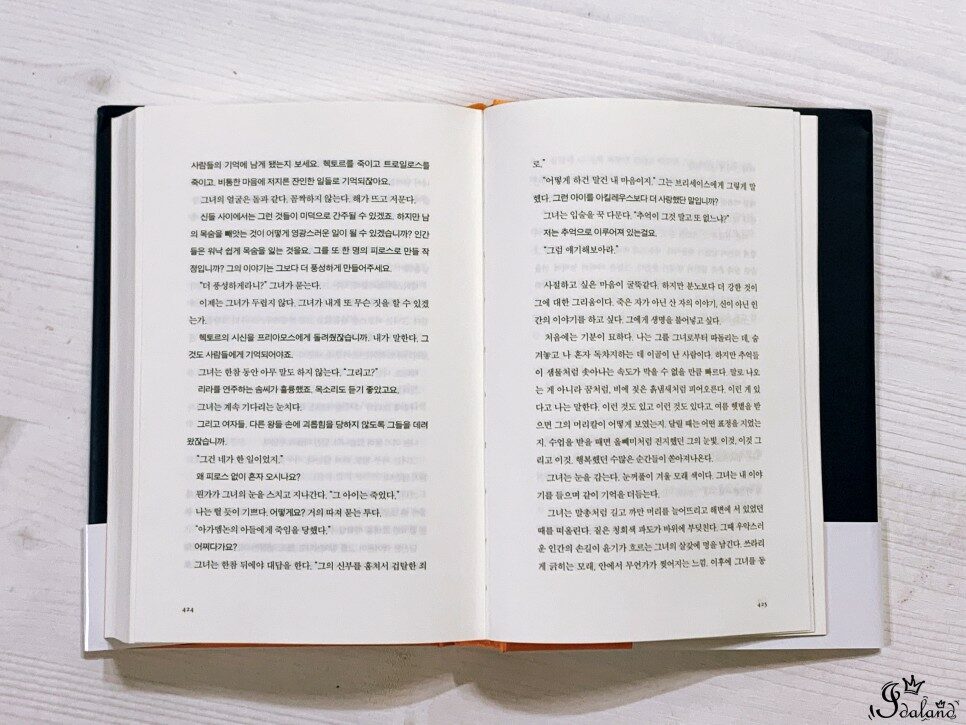 사람들의 기억에 남게 됐는지 보세요. 헥토르를 죽이고 트로일로스를
죽이고. 비통한 마음에 저지른 잔인한 일들로 기억되잖아요.
그녀의 얼굴은 돌과 같다. 꼼짝하지 않는다. 해가 뜨고 저문다.
신들 사이에서는 그런 것들이 미덕으로 간주될 수 있겠죠. 하지만 남
의 목숨을 빼앗는 것이 어떻게 영광스러운 일이 될 수 있겠습니까? 인간
들은 워낙 쉽게 목숨을 잃는 것을요. 그를 또 한 명의 피로스로 만들 작
정입니까? 그의 이야기는 그보다 더 풍성하게 만들어주세요.
“더 풍성하게라니?” 그녀가 묻는다.
이제는 그녀가 두렵지 않다. 그녀가 내게 또 무슨 짓을 할 수 있겠
는가.
헥토르의 시신을 프리아모스에게 돌려줬잖습니까. 내가 말한다. 그
것도 사람들에게 기억되어야죠.
그녀는 한참 동안 아무 말도 하지 않는다. “그리고?”
리라를 연주하는 솜씨가 훌륭했죠. 목소리도 듣기 좋았고요.
그녀는 계속 기다리는 눈치다.
그리고 여자들. 다른 왕들 손에 괴롭힘을 당하지 않도록 그들을 데려
왔잖습니까.
“그건 네가 한 일이었지.”
왜 피로스 없이 혼자 오시나요?
뭔가가 그녀의 눈을 스치고 지나간다. “그 아이는 죽었다.”
나는 뛸 듯이 기쁘다. 어떻게요? 거의 따져 묻는 투다.
“아가멤논의 아들에게 죽임을 당했다.”
어쩌다가요?
그녀는 한참 뒤에야 대답을 한다. “그의 신부를 훔쳐서 겁탈한 죄
424
로.”
“어떻게 하건 말건 내 마음이지.” 그는 브리세이스에게 그렇게 말
했다. 그런 아이를 아킬레우스보다 더 사랑했단 말입니까?
그녀는 입술을 꾹 다문다. “추억이 그것 말고 또 없느냐?”
저는 추억으로 이루어져 있는걸요.
“그럼 얘기해보아라.”
사절하고 싶은 마음이 굴뚝같다. 하지만 분노보다 더 강한 것이
그에 대한 그리움이다. 죽은 자가 아닌 산 자의 이야기, 신이 아닌 인
간의 이야기를 하고 싶다. 그에게 생명을 불어넣고 싶다.
처음에는 기분이 묘하다. 나는 그를 그녀로부터 따돌리는 데, 숨
겨놓고 나 혼자 독차지하는 데 이골이 난 사람이다. 하지만 추억들
이 샘물처럼 솟아나는 속도가 막을 수 없을 만큼 빠르다. 말로 나오
는 게 아니라 꿈처럼, 비에 젖은 흙냄새처럼 피어오른다. 이런 게 있
다고 나는 말한다. 이런 것도 있고 이런 것도 있다고. 여름 햇볕을 받
으면 그의 머리칼이 어떻게 보였는지. 달릴 때는 어떤 표정을 지었는
지. 수업을 받을 때면 올빼미처럼 진지했던 그의 눈빛. 이것, 이것 그
리고 이것. 행복했던 수많은 순간들이 쏟아져나온다.
그녀는 눈을 감는다. 눈꺼풀이 겨울 모래 색이다. 그녀는 내 이야
기를 들으며 같이 기억을 더듬는다.
그녀는 말총처럼 길고 까만 머리를 늘어뜨리고 해변에 서 있었던
때를 떠올린다. 짙은 청회색 파도가 바위에 부딪친다. 그때 우악스러
운 인간의 손길이 윤기가 흐르는 그녀의 살갗에 멍을 남긴다. 쓰라리
게 긁히는 모래, 안에서 무언가가 찢어지는 느낌. 이후에 그녀를 동
425
Idaland